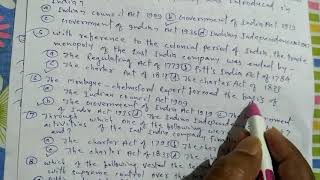 India?
(a) Indian Council Act 1909 (b) Government of India Act 1919
(c) Government of Indian Act 1935 (d) Indian Independence
(5) With reference to the colonial period of India, the trade
monopoly of the East India Company was ended by
(a) The Regulating Act of 1773 (b) Pitt's India Act of 1784
(c) The Charter Act of 1813 (d) The Charter Act of 1833
(6) The Montague-chelmsford report formed the basis of
(a) The Indian Council Act 1909
(b) The Government of India Act 1919 (c) The Government
Act 1935 (d) The Indian Independence
(7) Through which one of the following were
activities of the East India Company finally
end?
(a) The Charter Act of 1793 (b) The
(c) The Charter Act of 1833 (d) The
(8) which of the following vested the
with supreme control over the